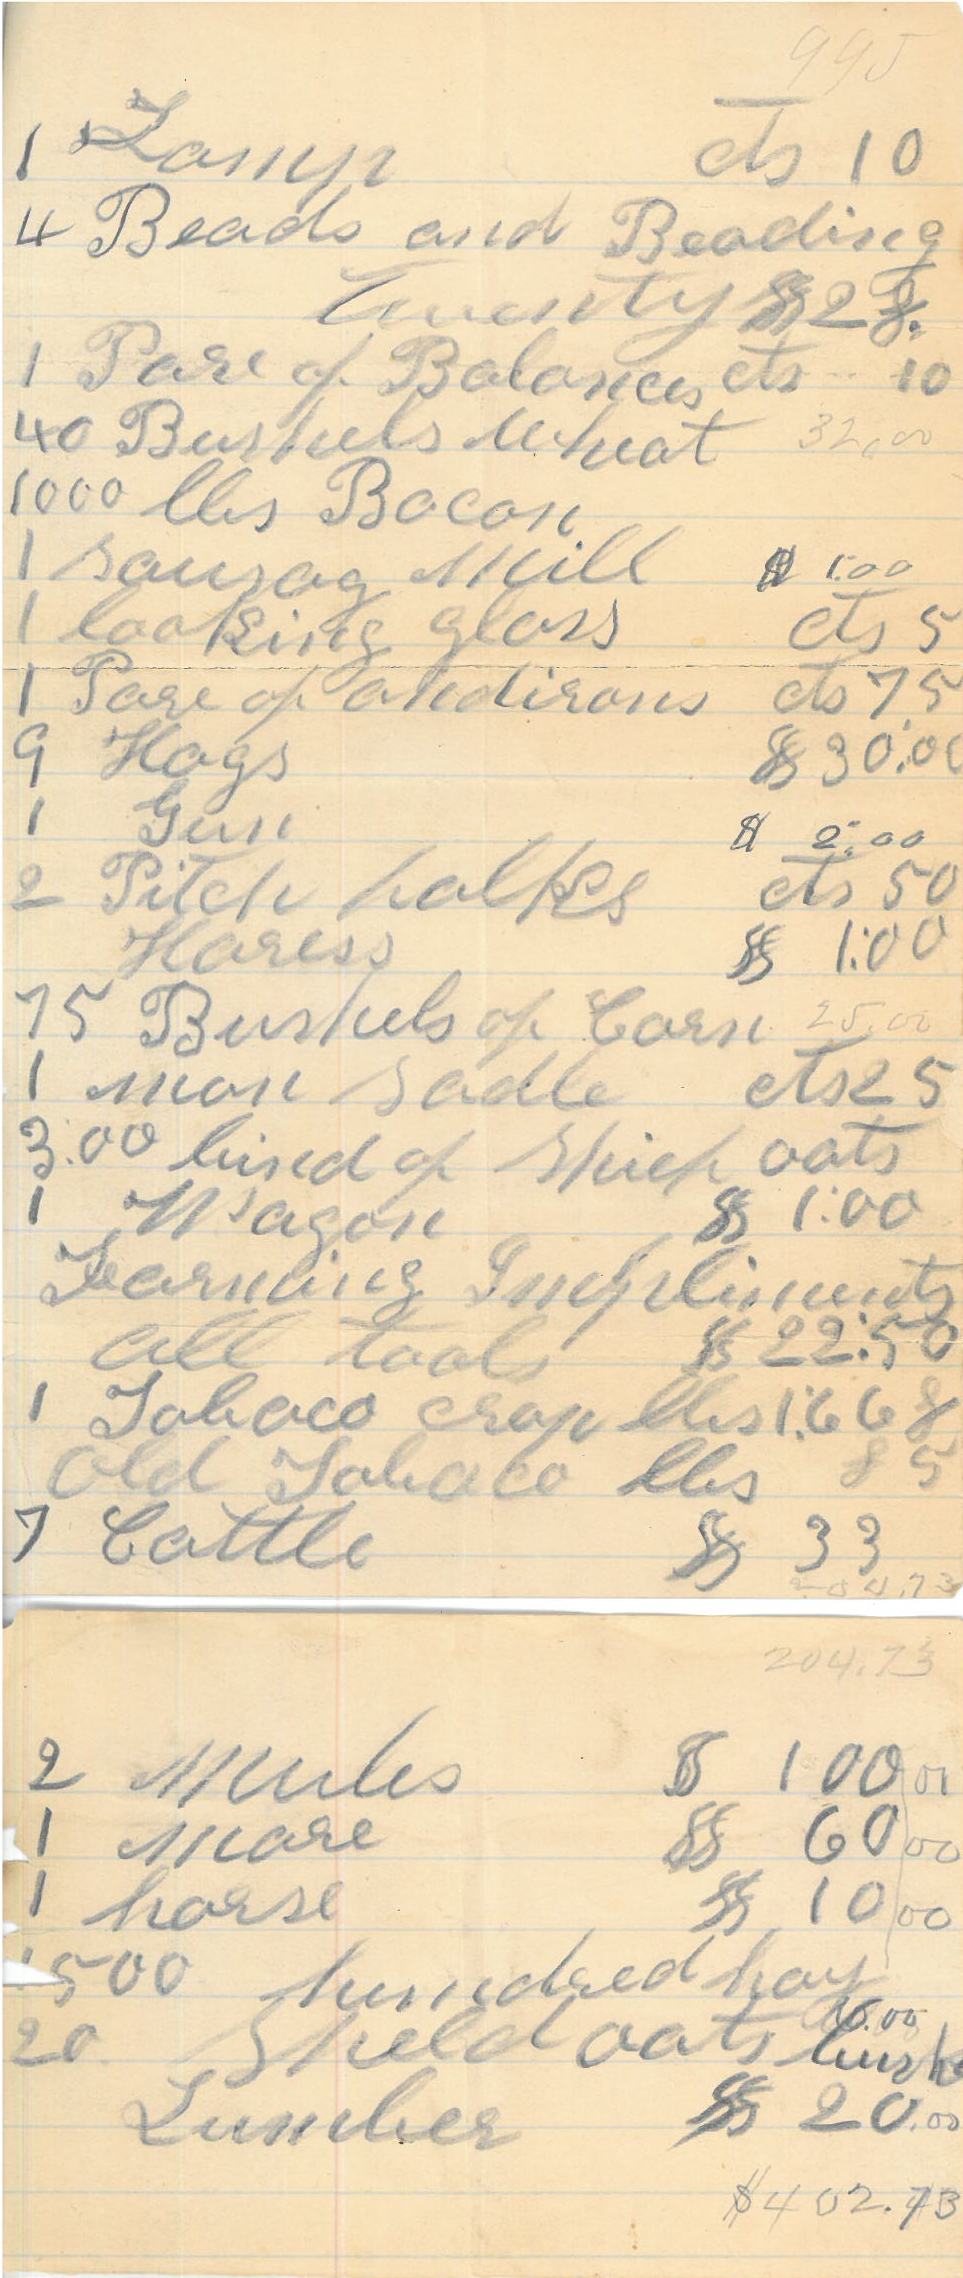 995
1 Lamp cts 10
4 Beads and Beading
Twenty $ 28.
1 Pare of Balances cts 10
40 Bushels Wheat 32.00
1000 lbs Bacon
1 Sausag Mill $ 1.00
1 looking glass cts 5
1 Pare of andirons cts 75
9 Hogs $ 30.00
1 Gun $ 2.00
2 Pitch halks cts 50
Haress $ 1:00
75 Bushels of Corn 25.00
1 man sadle cts 25
3:00 bind of Shief oats
1 Wagon $ 1:00
Fearming Impliments
all tools $ 22.50
1 Tobaco crop lbs 1668
Old Tobaco lbs 85
7 Cattle $ 33
204.73
204.73
2 Mules $ 100 00
1 Mare $ 60 00
1 horse $ 10 00
1500 hundred hay
20 Sheld oats bush
Lumber $ 20.00
$402.73